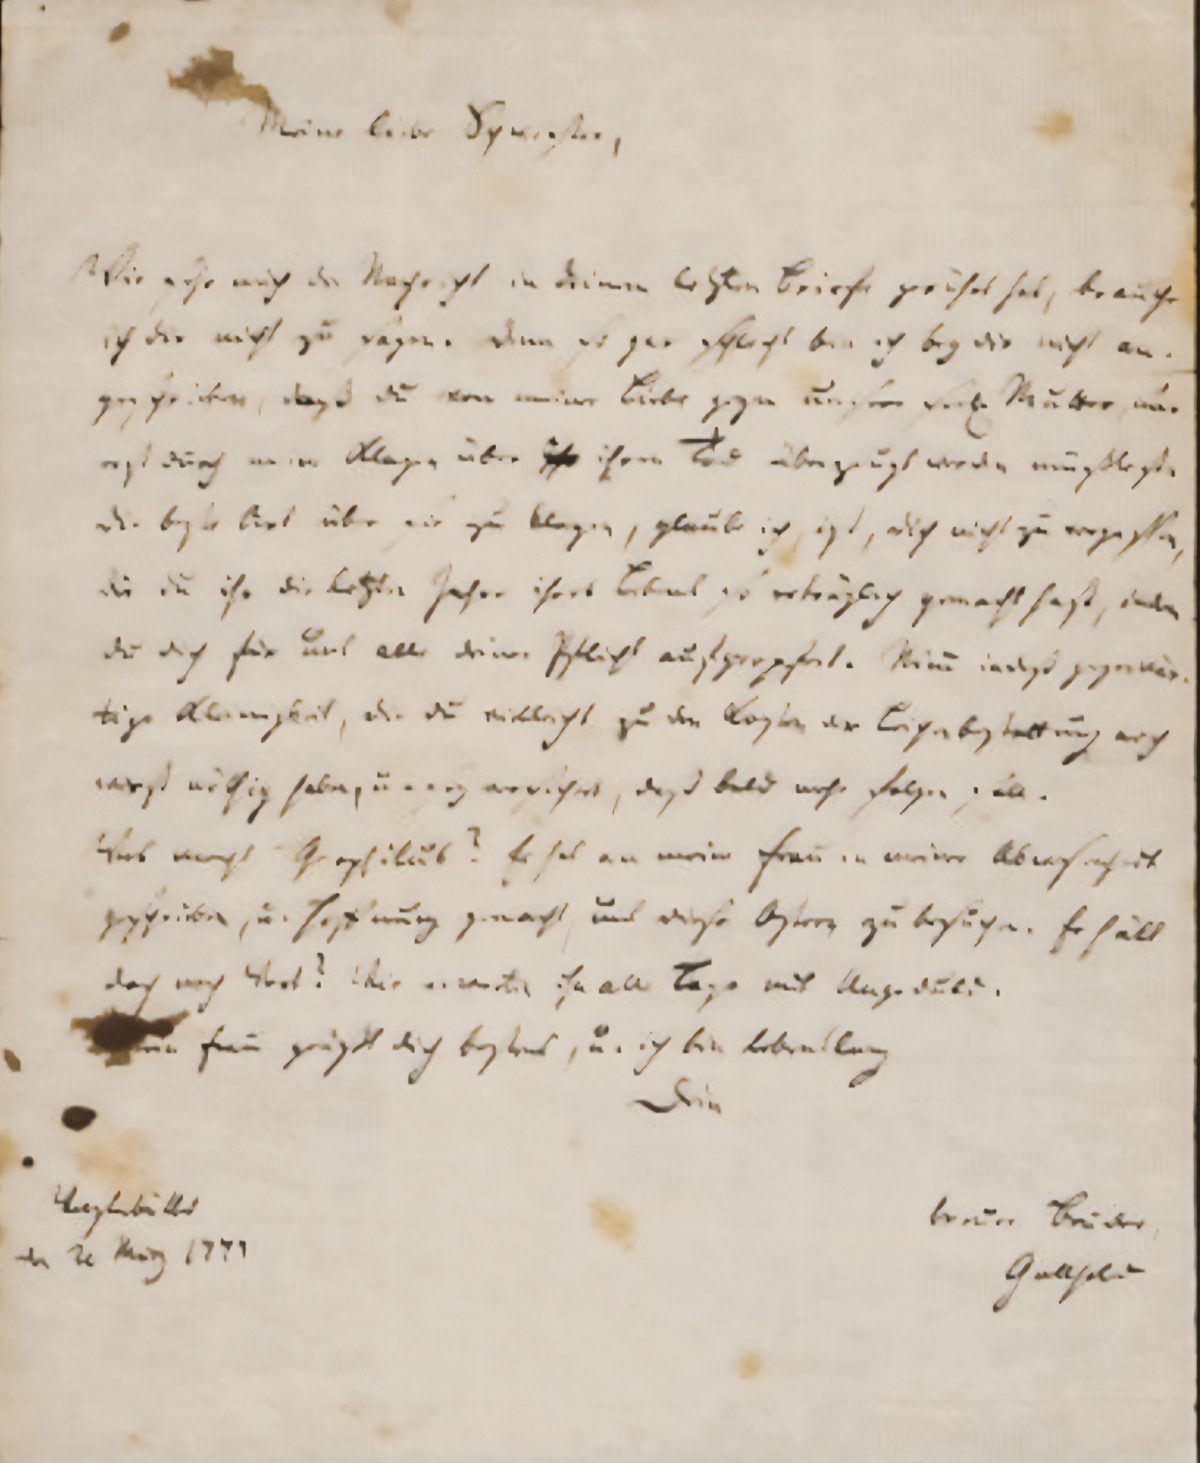 Meine liebe Schwester,
Wie sehr mich die Nachricht in deinem letzten Briefe gerühret hat, brauche
ich dir nicht zu sagen. Denn so gar schlecht bin ich bey dir nicht an-
geschrieben, daß du von meiner Liebe gegen unsere seel. Mutter nur
erst durch meine Klagen über ihren Tod überzeugt werden müßtest.
Die beste Art über sie zu klagen, glaube ich, ist, dich nicht zu vergessen,
die du ihr die letzten Jahre ihres Lebens so erträglich gemacht hast, indem
du dich für uns alle deiner Pflicht aufgeopfert. Nimm indeß gegenwär-
tige Kleinigkeit, die du vielleicht zu den Kosten der Leichenbestattung noch
wirst nöthig haben, u. sey versichert, daß bald mehr folgen soll.
Was macht Theophilus? Er hat an meine Frau in meiner Abwesenheit
geschrieben, u. Hoffnung gemacht, uns diese Ostern zu besuchen. Er hält
doch noch Wort? Wir erwarten ihn alle Tage mit Ungeduld.
Meine Frau grüßt dich bestens, u. ich bin lebenslang
Dein
treuer Bruder,
Gotthold
Wolfenbüttel
den März 1777